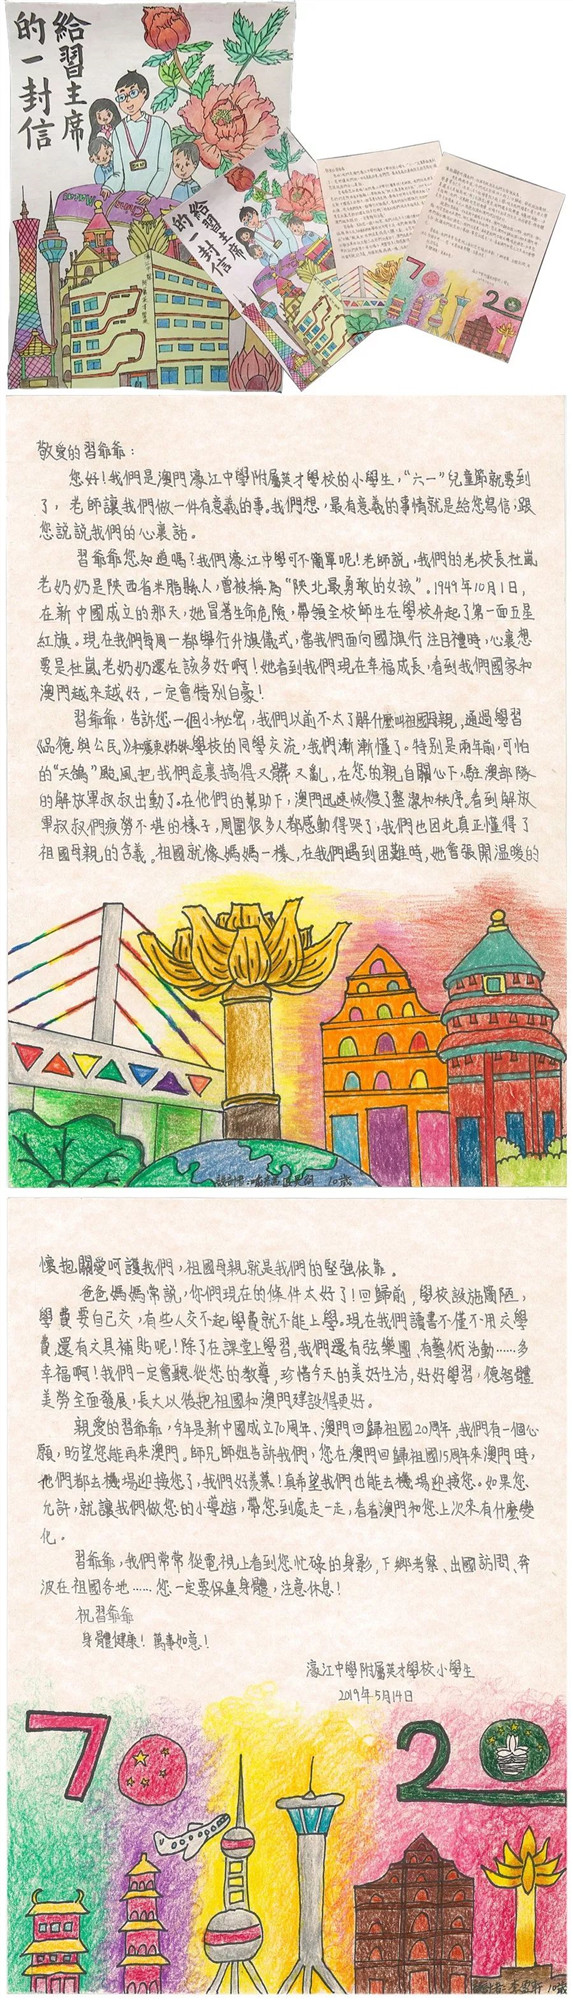 給習主席
的一封信
給習主席
的一封信
敬愛的習爺爺：
您好！我們是澳門濠江中學附屬英才學校的小學生，“六一”兒童節就要到
了，老師讓我們做一件有意義的事。我們想，最有意義的事情就是給您寫信，跟
您說說我們的心裏話。
習爺爺您知道嗎？我們濠江中學可不簡單呢！老師說，我們的老校長杜嵐
老奶奶是陝西省米脂縣人，曾被稱為“陝北最勇敢的女孩”。1949年10月1日，
在新中國成立的那天，她冒著生命危險，帶領全校師生在學校升起了第一面五星
紅旗。現在我們每周一都舉行升旗儀式，當我們面向國旗行注目禮時，心裏想
要是杜嵐老奶奶還在該多好啊！她看到我們現在幸福成長，看到我們國家和
澳門越來越好，一定會特別自豪！
習爺爺，告訴您一個小秘密，我們以前不太了解什麼叫祖國母親，通過學習
《品德與公民》和廣東姊妹學校的同學交流，我們漸漸懂了。特別是兩年前，可怕
的“天鴿”颱風把我們這裏搞得又髒又亂，在您的親自關心下，駐澳部隊
的解放軍叔叔出動了。在他們的幫助下，澳門迅速恢復了整潔和秩序。看到解放
軍叔叔們疲勞不堪的樣子，周圍很多人都感動得哭了，我們也因此真正懂得了
祖國母親的含義。祖國就像媽媽一樣，在我們遇到困難時，她會張開溫暖的
10歲
懷抱關愛呵護我們，祖國母親就是我們的堅強依靠。
爸爸媽媽常說，你們現在的條件太好了！回歸前，學校設施簡陋，
學費要自己交，有些人交不起學費就不能上學。現在我們讀書不僅不用交學
費，還有文具補貼呢！除了在課堂上學習，我們還有弦樂團、有藝術活動……多
幸福啊！我們一定會聽從您的教導，珍惜今天的美好生活，好好學習，德智體
美勞全面發展，長大以後把祖國和澳門建設得更好。
親愛的習爺爺，今年是新中國成立70周年、澳門回歸祖國20周年，我們有一個心
願，盼望您能再來澳門。師兄師姐告訴我們，您在澳門回歸祖國15周年來澳門時，
他們都去機場迎接您了，我們好羨慕！真希望我們也能去機場迎接您。如果您
允許，就讓我們做您的小導遊，帶您到處走一走，看看澳門和您上次來有什麼變
化。
習爺爺，我們常常從電視上看到您忙碌的身影，下鄉考察、出國訪問、奔
波在祖國各地……您一定要保重身體，注意休息！
祝習爺爺
身體健康！萬事如意！
濠江中學附屬英才學校小學生
2019年5月14日
70 20
10歲